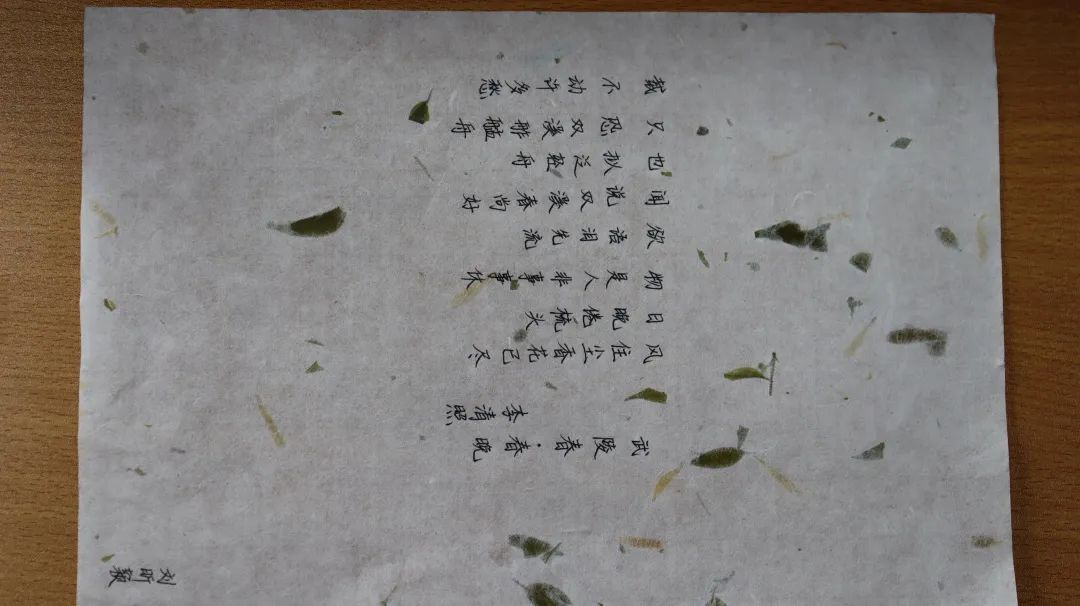 武陵春·春晚
李清照
风住尘香花已尽
日晚倦梳头
物是人非事事休
欲语泪先流
闻说双溪春尚好
也拟泛轻舟
只恐双溪舴艋舟
载不动许多愁
刘昕颖